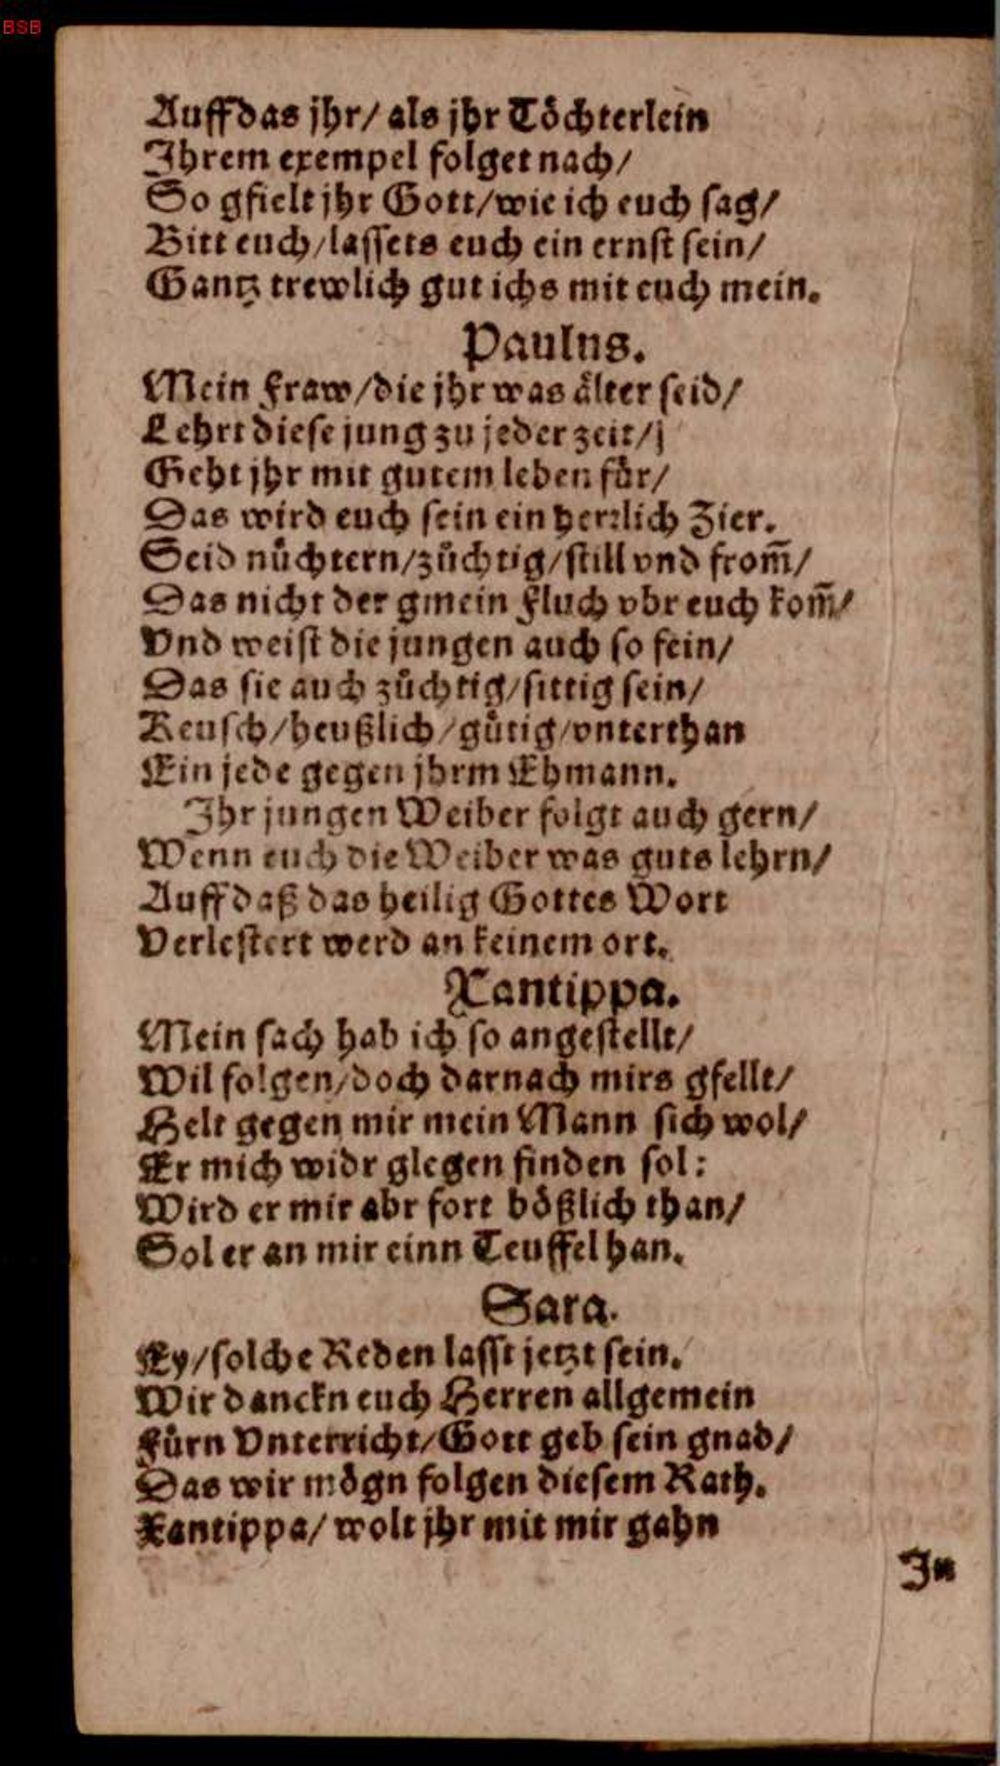 BSB
Auffdas jhr/ als jhr Töchterlein
Ihrem exempel folget nach/
So gfielt jhr Gott/wie ich euch sag/
Bitt euch/lassets euch ein ernst sein/
Gantz trewlich gut ichs mit euch mein.
Paulus.
Mein Fraw/die jhr was älter seid/
Lehrt diese jung zu jeder zeit/
Geht jhr mit gutem leben für/
Das wird euch sein ein herrlich Zier.
Seid nüchtern/züchtig/still vnd from̄/
Das nicht der gmein Fluch vbr euch kom̄/
Vnd weist die jungen auch so fein/
Das sie auch züchtig/sittig sein/
Keusch/heußlich/gütig/vnterthan
Ein jede gegen jhrm Ehmann.
Ihr jungen Weiber folgt auch gern/
Wenn euch die Weiber was guts lehrn/
Auff daß das heilig Gottes Wort
Verlestert werd an keinem ort.
Xantippa.
Mein sach hab ich so angestellt/
Wil folgen/doch darnach mirs gfellt/
Helt gegen mir mein Mann sich wol/
Er mich widr glegen finden sol:
Wird er mir abr fort bößlich than/
Sol er an mir einn Teuffel han.
Sara.
Ey/solche Reden lasst jetzt sein.
Wir danckn euch Herren allgemein
Fürn Vnterricht/Gott geb sein gnad/
Das wir mögn folgen diesem Rath.
Xantippa/ wolt jhr mit mir gahn
In